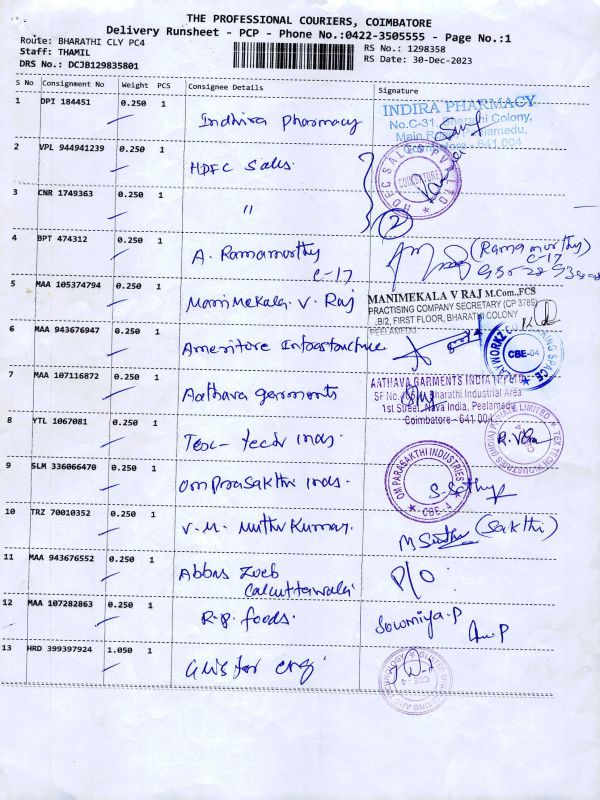 THE PROFESSIONAL COURIERS, COIMBATORE
Delivery Runsheet - PCP - Phone No.:0422-3505555 - Page No.:1
Route: BHARATHI CLY PC4
RS No.: 1298358
Staff: THAMIL
RS Date: 30-Dec-2023
DRS No.: DCJB129835801
S No Consignment No Weight PCS Consignee Details Signature
1 DPI 184451 0.250 1 Indhira pharmacy
INDIRA PHARMACY
No.C-31, Bharathi Colony,
Main Peelamedu,
Coimbatore - 641 004
2 VPL 944941239 0.250 1 HDFC Sales
COIMBATORE
3 CNR 1749363 0.250 1 "
2
4 BPT 474312 0.250 1 A. Ramamorthy
C-17
(Ramamorthy)
C-17
5 MAA 105374794 0.250 1 Manimekala. V. Raj
MANIMEKALA V RAJ M.Com.,FCS
PRACTISING COMPANY SECRETARY (CP 3789)
B/2, FIRST FLOOR, BHARATHI COLONY
PEELAMEDU
6 MAA 943676947 0.250 1
CBE-04
7 MAA 107116872 0.250 1 Aathava garments
AATHAVA GARMENTS INDIA
SF No. Bharathi Industrial Area
1st Street, Nava India, Peelamedu
Coimbatore - 641 004
8 YTL 1067081 0.250 1 Tex-tech inds.
TEX TECH INDUSTRIES (INDIA) PRIVATE LIMITED
9 SLM 336066470 0.250 1 omparasakthi inds.
OM PARASAKTHI INDUSTRIES
CBE-4
10 TRZ 70010352 0.250 1 V. M. Muthu Kumar.
(Sakthi)
11 MAA 943676552 0.250 1 Abbas Zoeb
Calcuttawala
P/O
12 MAA 107282863 0.250 1 R.P. foods.
Sowmiya.P
13 HRD 399397924 1.050 1
CBE-4